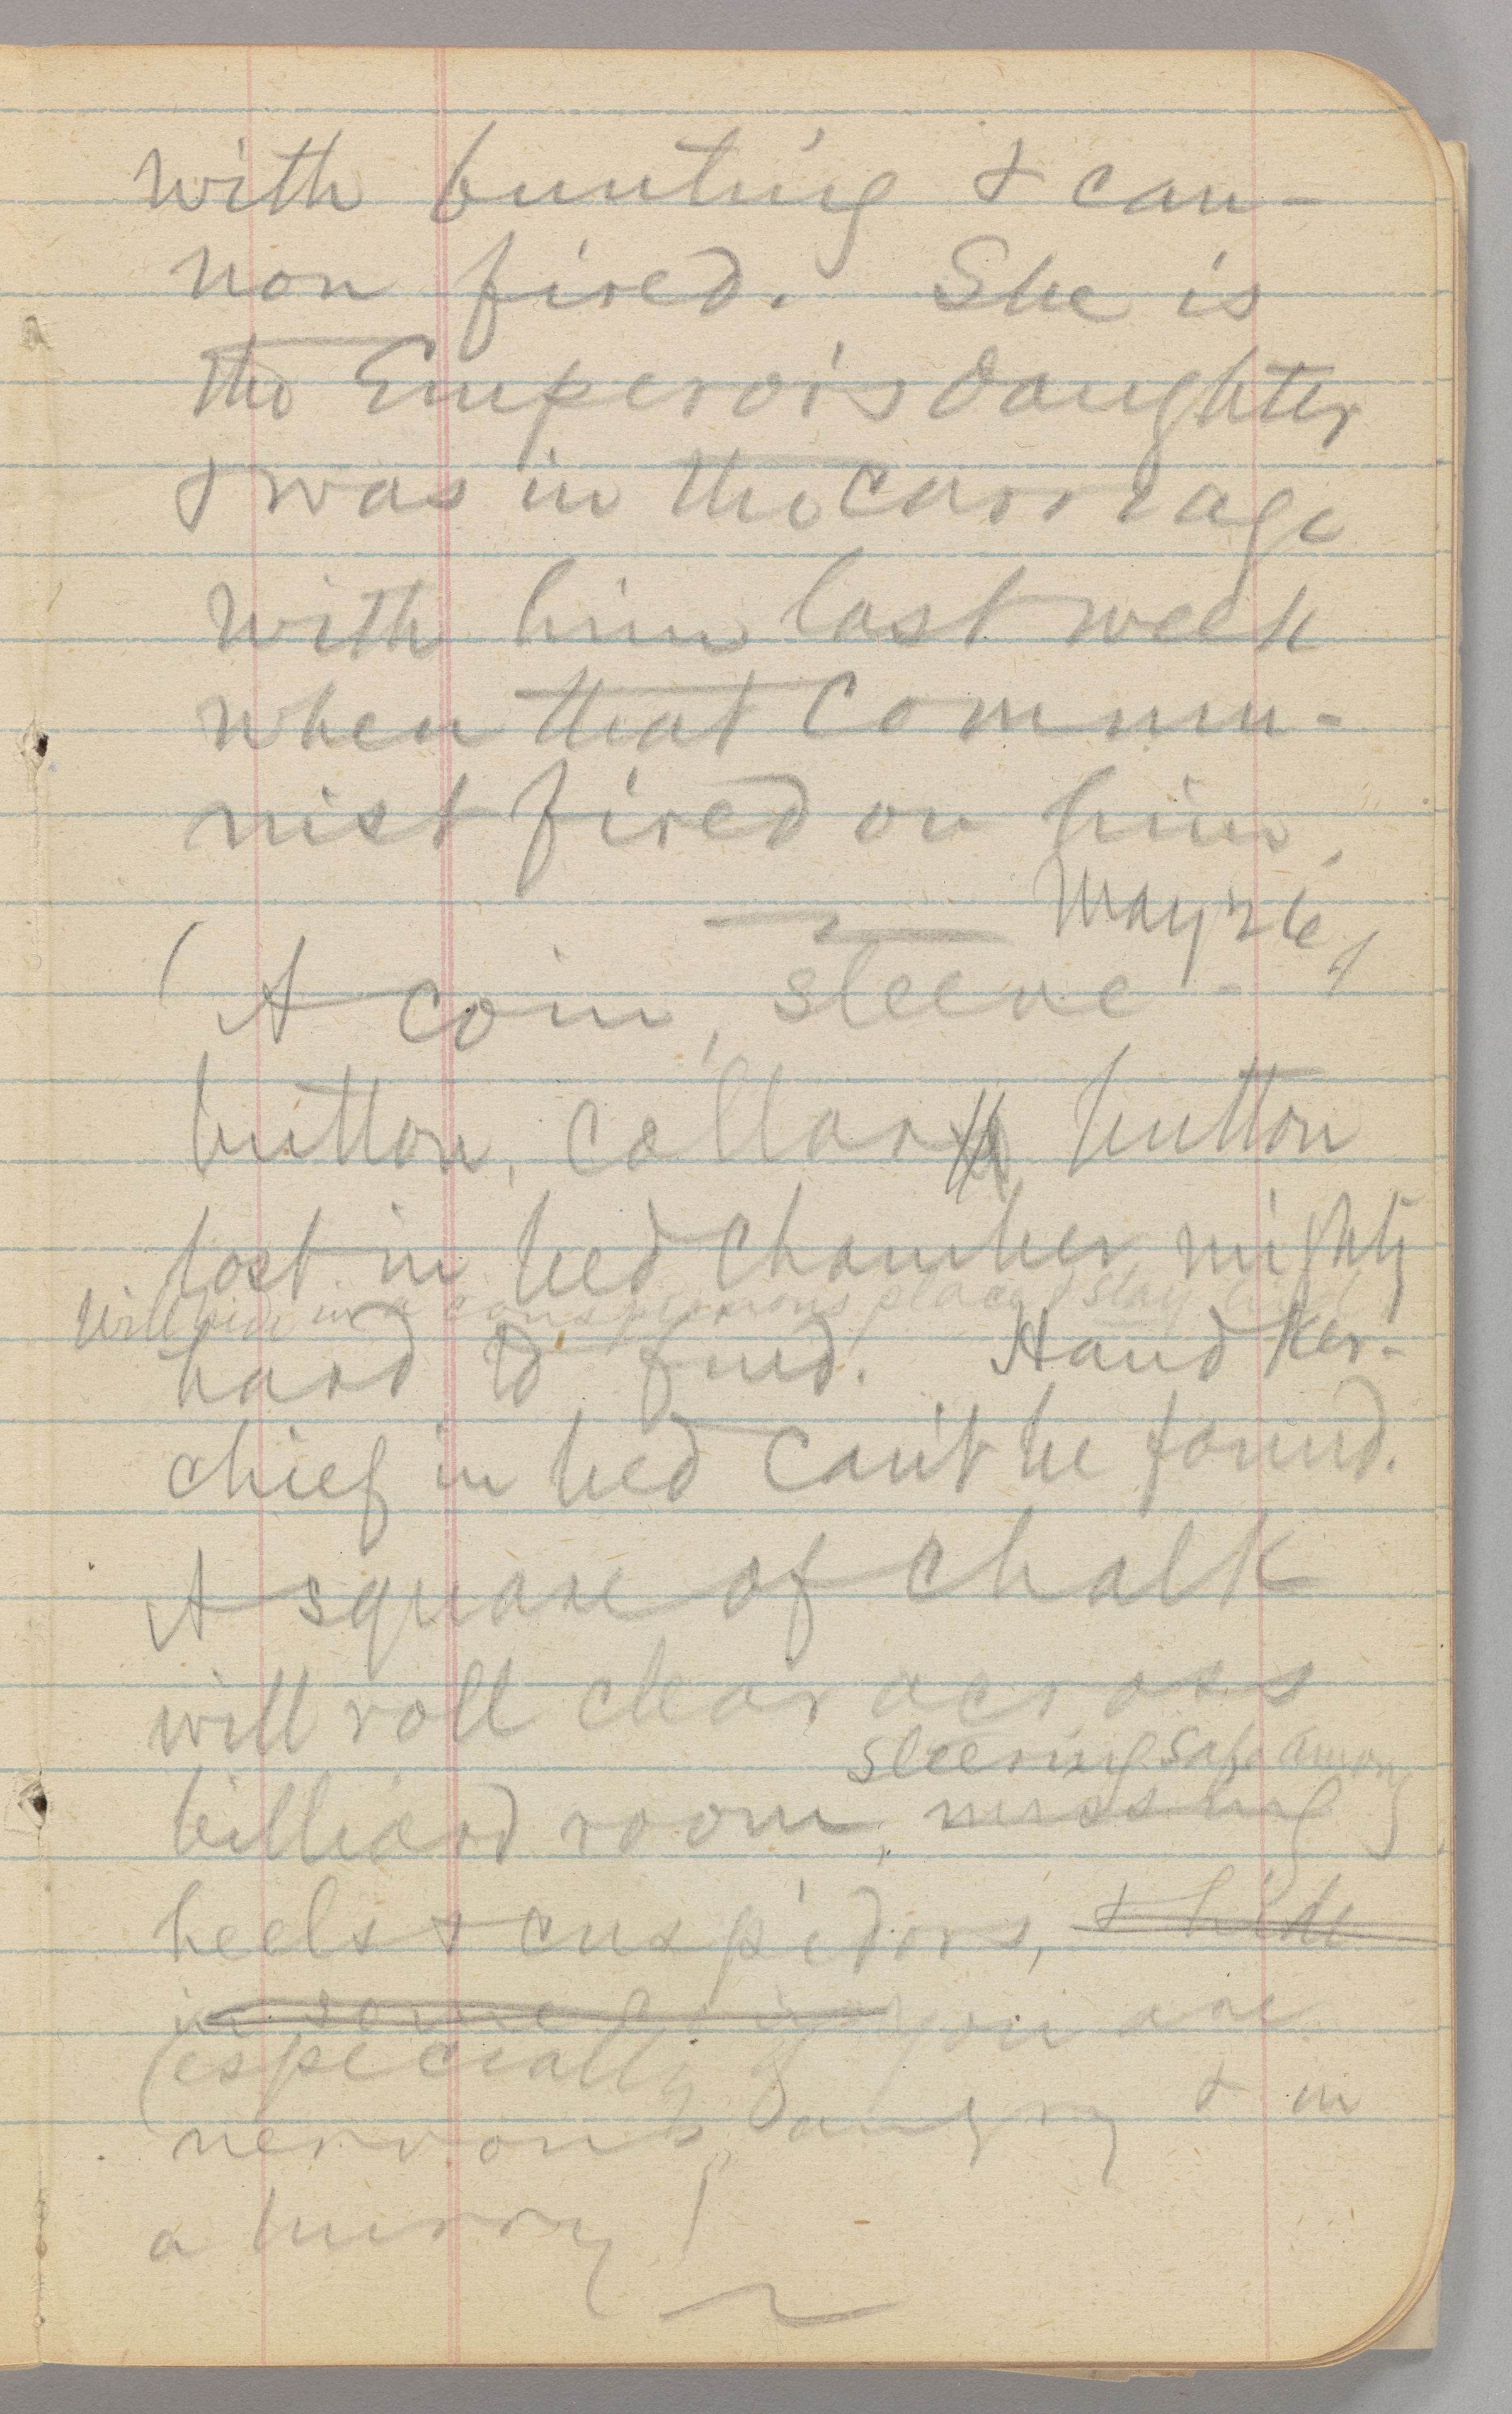 with bunting & can-
non fired. She is
the Emperor's daughter
& was in the carriage
with him last week
when that Commu-
nist fired on him.
May 26
(A coin, sleeve-
button, collar button
lost in bed chamber mighty
Will hide in a conspicuous place & stay
hard to find. Handker-
chief in bed can't be found.
A square of chalk
will roll clear across
sleering safe among
billiard room, missing
heels & cuspidors, & hide
in some
(especially if you are
nervous angry & in
a hurry)